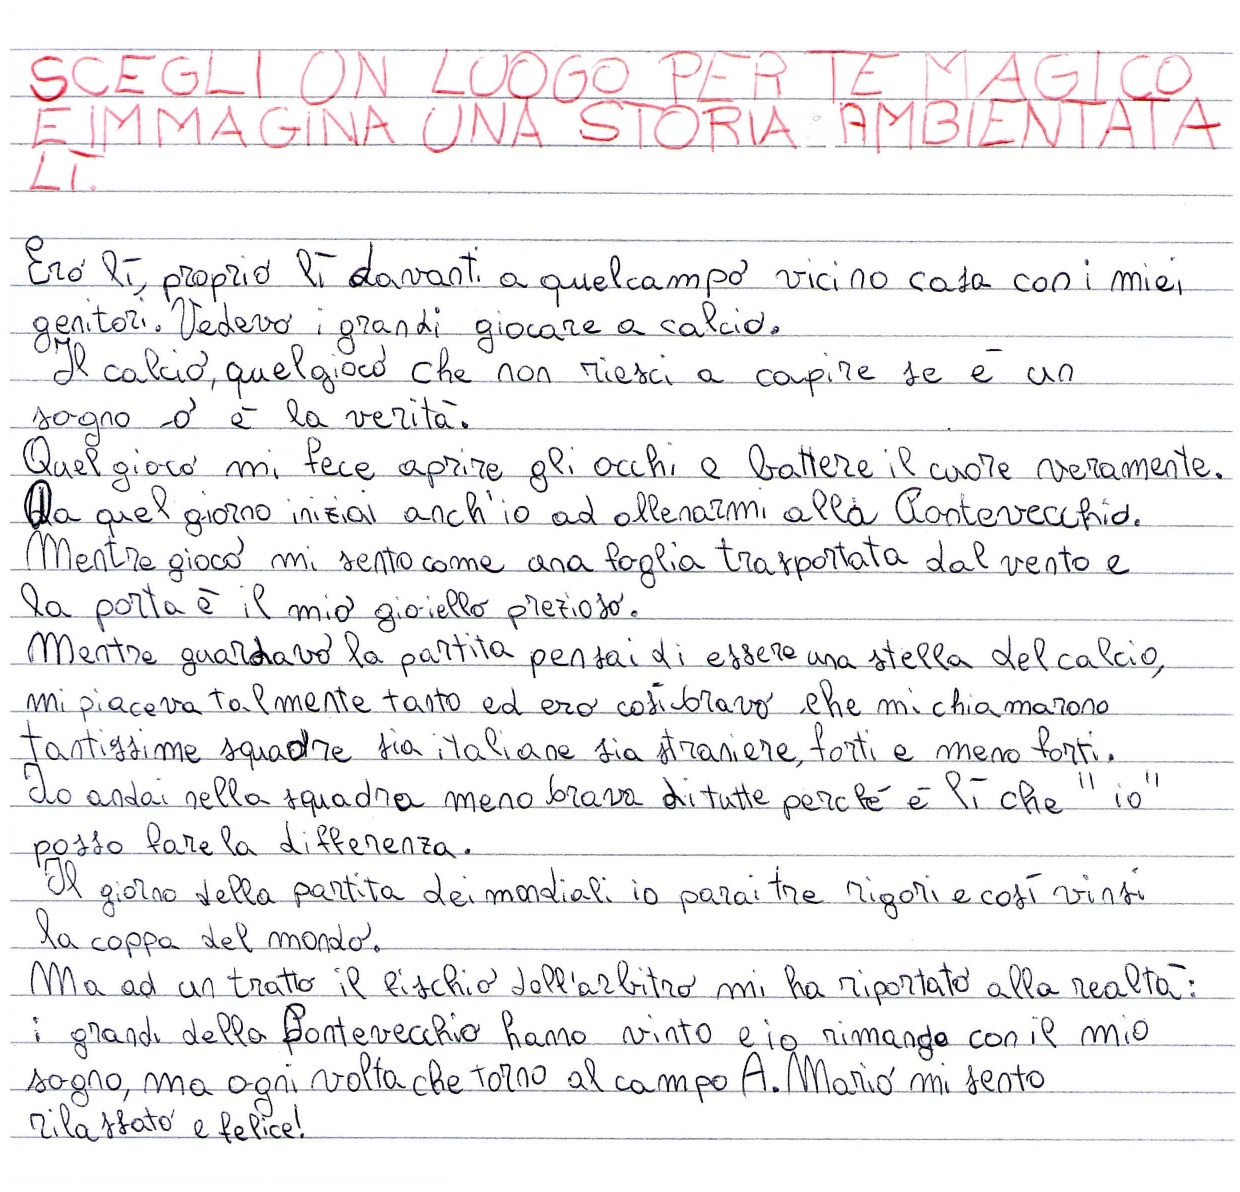 SCEGLI UN LUOGO PER TE MAGICO
E IMMAGINA UNA STORIA AMBIENTATA
LÌ.
Ero lì, proprio lì davanti a quel campo vicino casa con i miei
genitori. Vedevo i grandi giocare a calcio.
Il calcio, quel gioco che non riesci a capire se è un
sogno o è la verità.
Quel gioco mi fece aprire gli occhi e battere il cuore veramente.
Da quel giorno iniziai anch'io ad allenarmi alla Pontevecchio.
Mentre gioco mi sento come una foglia trasportata dal vento e
la porta è il mio gioiello prezioso.
Mentre guardavo la partita pensai di essere una stella del calcio,
mi piaceva talmente tanto ed ero così bravo che mi chiamarono
tantissime squadre sia italiane sia straniere, forti e meno forti.
Io andai nella squadra meno brava di tutte perché è lì che "io"
posso fare la differenza.
Il giorno della partita dei mondiali io parai tre rigori e così vinsi
la coppa del mondo.
Ma ad un tratto il fischio dell'arbitro mi ha riportato alla realtà:
i grandi della Pontevecchio hanno vinto e io rimango con il mio
sogno, ma ogni volta che torno al campo A. Mario mi sento
rilassato e felice!